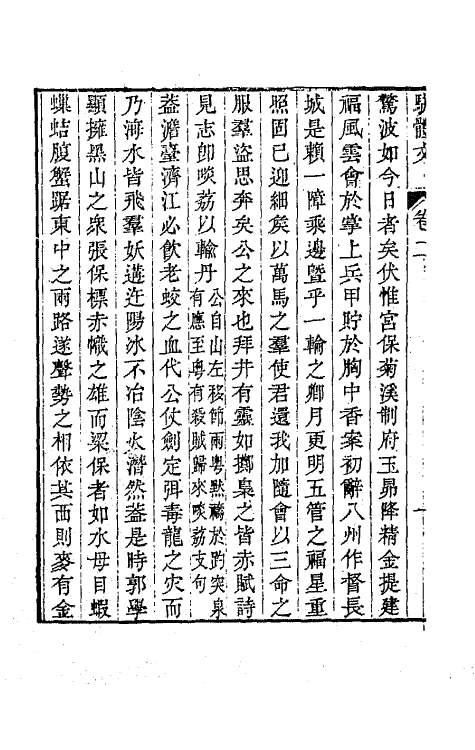 駢體文 卷二
驚波如今日者矣伏惟宮保菊溪制府玉昴降精金提建
福風雲會於掌上兵甲貯於胸中香案初辭八州作督長
城是賴一障乘邊暨乎一輪之鄉月更明五管之福星重
照固已迎細矦以萬馬之羣使君還我加隨會以三命之
服羣盜思奔矣公之來也拜井有靈如擲梟之皆赤賦詩
見志卽啖荔以輸丹
公自山左移節兩粤默禱於趵突泉
有應至粤有殺賊歸來啖荔支句
蓋澹臺濟江必飲老蛟之血代公仗劍定弭毒龍之灾而
乃海水皆飛羣妖遘迕陽冰不冶陰火潛然蓋是時郭學
顯擁黑山之衆張保標赤幟之雄而梁保者如水母目蝦
蠂蛣腹蟹踞東中之兩路遂聲勢之相依其西則麥有金